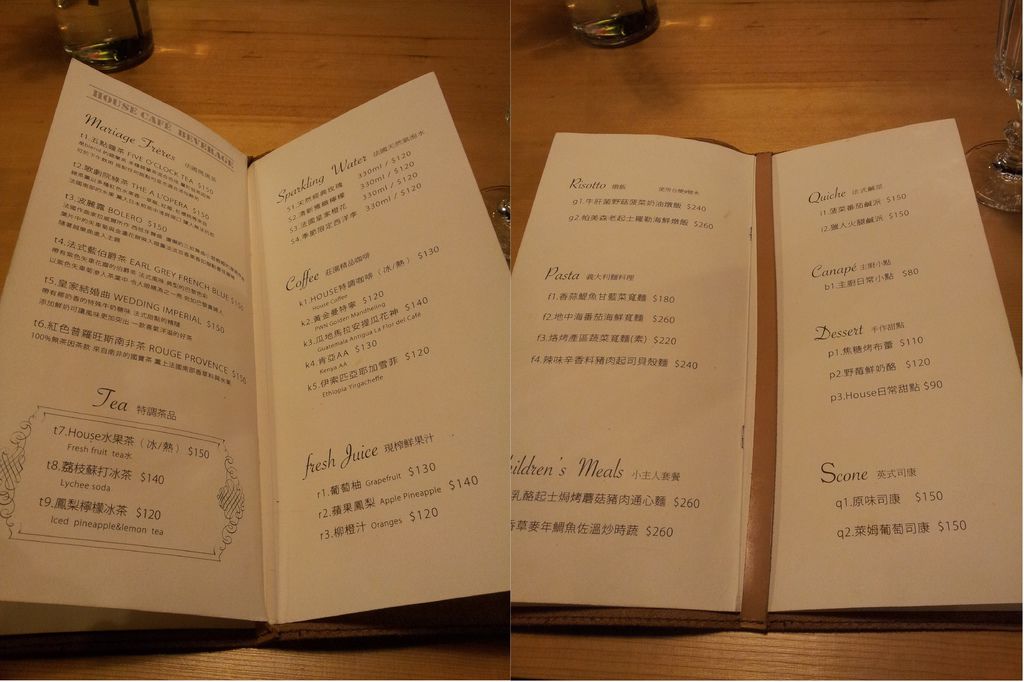 HOUSE CAFÉ BEVERAGE
Mariage Frères
t1.五點鐘茶 FIVE O'CLOCK TEA $150
t2.歌劇院綠茶 THE A L'OPERA $150
t3.波麗露 BOLERO $150
t4.法式藍伯爵茶 EARL GREY FRENCH BLUE $150
t5.皇家結婚曲 WEDDING IMPERIAL $150
t6.紅色普羅旺斯南非茶 ROUGE PROVENCE $150
Tea 特調茶品
t7.House水果茶（冰/熱） $150
Fresh fruit tea水
t8.荔枝蘇打冰茶 $140
Lychee soda
t9.鳳梨檸檬冰茶 $120
Iced pineapple&lemon tea
Sparkling Water 法國天然氣泡水
s1.天然經典玫瑰 330ml / $120
s2.清新檸檬檸檬 330ml / $120
s3.法國皇家橙花 330ml / $120
s4.季節限定西洋李 330ml / $120
Coffee 莊園精品咖啡
k1.HOUSE特調咖啡（冰/熱） $130
House Coffee
k2.黃金曼特寧 $120
PWN Golden Mandheling
k3.瓜地馬拉安提瓜花神 $140
Guatemala Antigua La Flor del Café
k4.肯亞AA $130
Kenya AA
k5.伊索匹亞耶加雪菲 $120
Ethiopia Yirgacheffe
fresh Juice 現榨鮮果汁
r1.葡萄柚 Grapefruit $130
r2.蘋果鳳梨 Apple Pineapple $140
r3.柳橙汁 Oranges $120
Risotto 燉飯
g1.牛肝菌野菇菠菜奶油燉飯 $240
g2.帕美森老起士羅勒海鮮燉飯 $260
Pasta 義大利麵料理
f1.香蒜鯷魚甘藍菜寬麵 $180
f2.地中海番茄海鮮寬麵 $260
f3.烙烤產區蔬菜寬麵(素) $220
f4.辣味辛香料豬肉起司貝殼麵 $240
hildren's Meals 小主人套餐
乳酪起士焗烤蘑菇豬肉通心麵 $260
香草麥年鯛魚佐溫炒時蔬 $260
Quiche 法式鹹派
i1.菠菜番茄鹹派 $150
i2.獵人火腿鹹派 $150
Canapé 主廚小點
b1.主廚日常小點 $80
Dessert 手作甜點
p1.焦糖烤布蕾 $110
p2.野莓鮮奶酪 $120
p3.House日常甜點 $90
Scone 英式司康
q1.原味司康 $150
q2.萊姆葡萄司康 $150